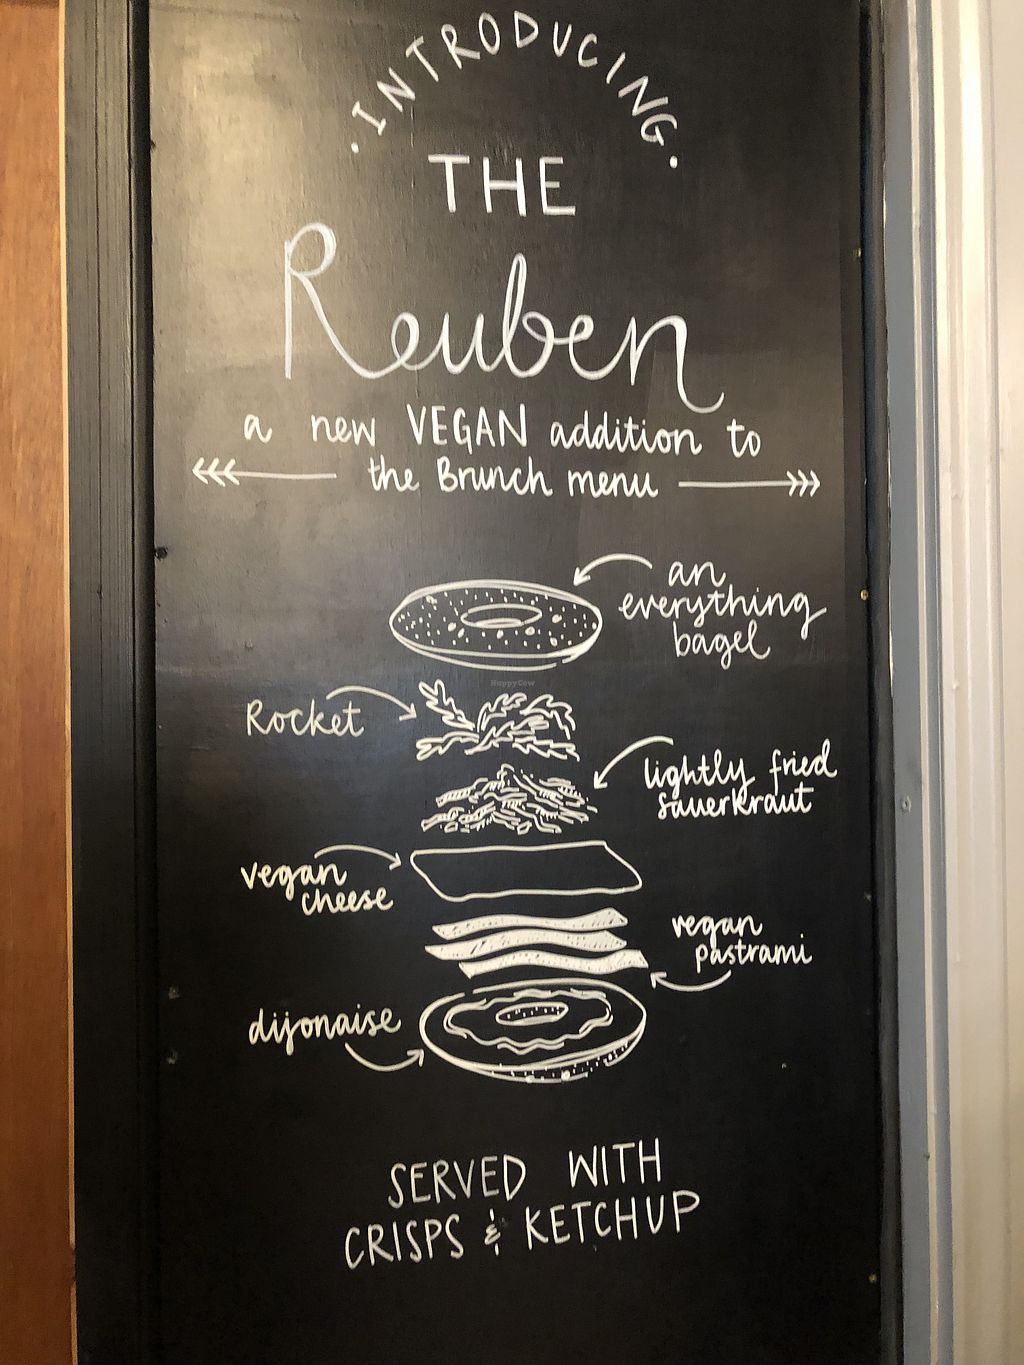 · INTRODUCING ·
THE
Reuben
a new VEGAN addition to
the Brunch menu
an
everything
bagel
HappyCow
Rocket
lightly fried
sauerkraut
vegan
cheese
vegan
pastrami
dijonaise
SERVED WITH
CRISPS & KETCHUP